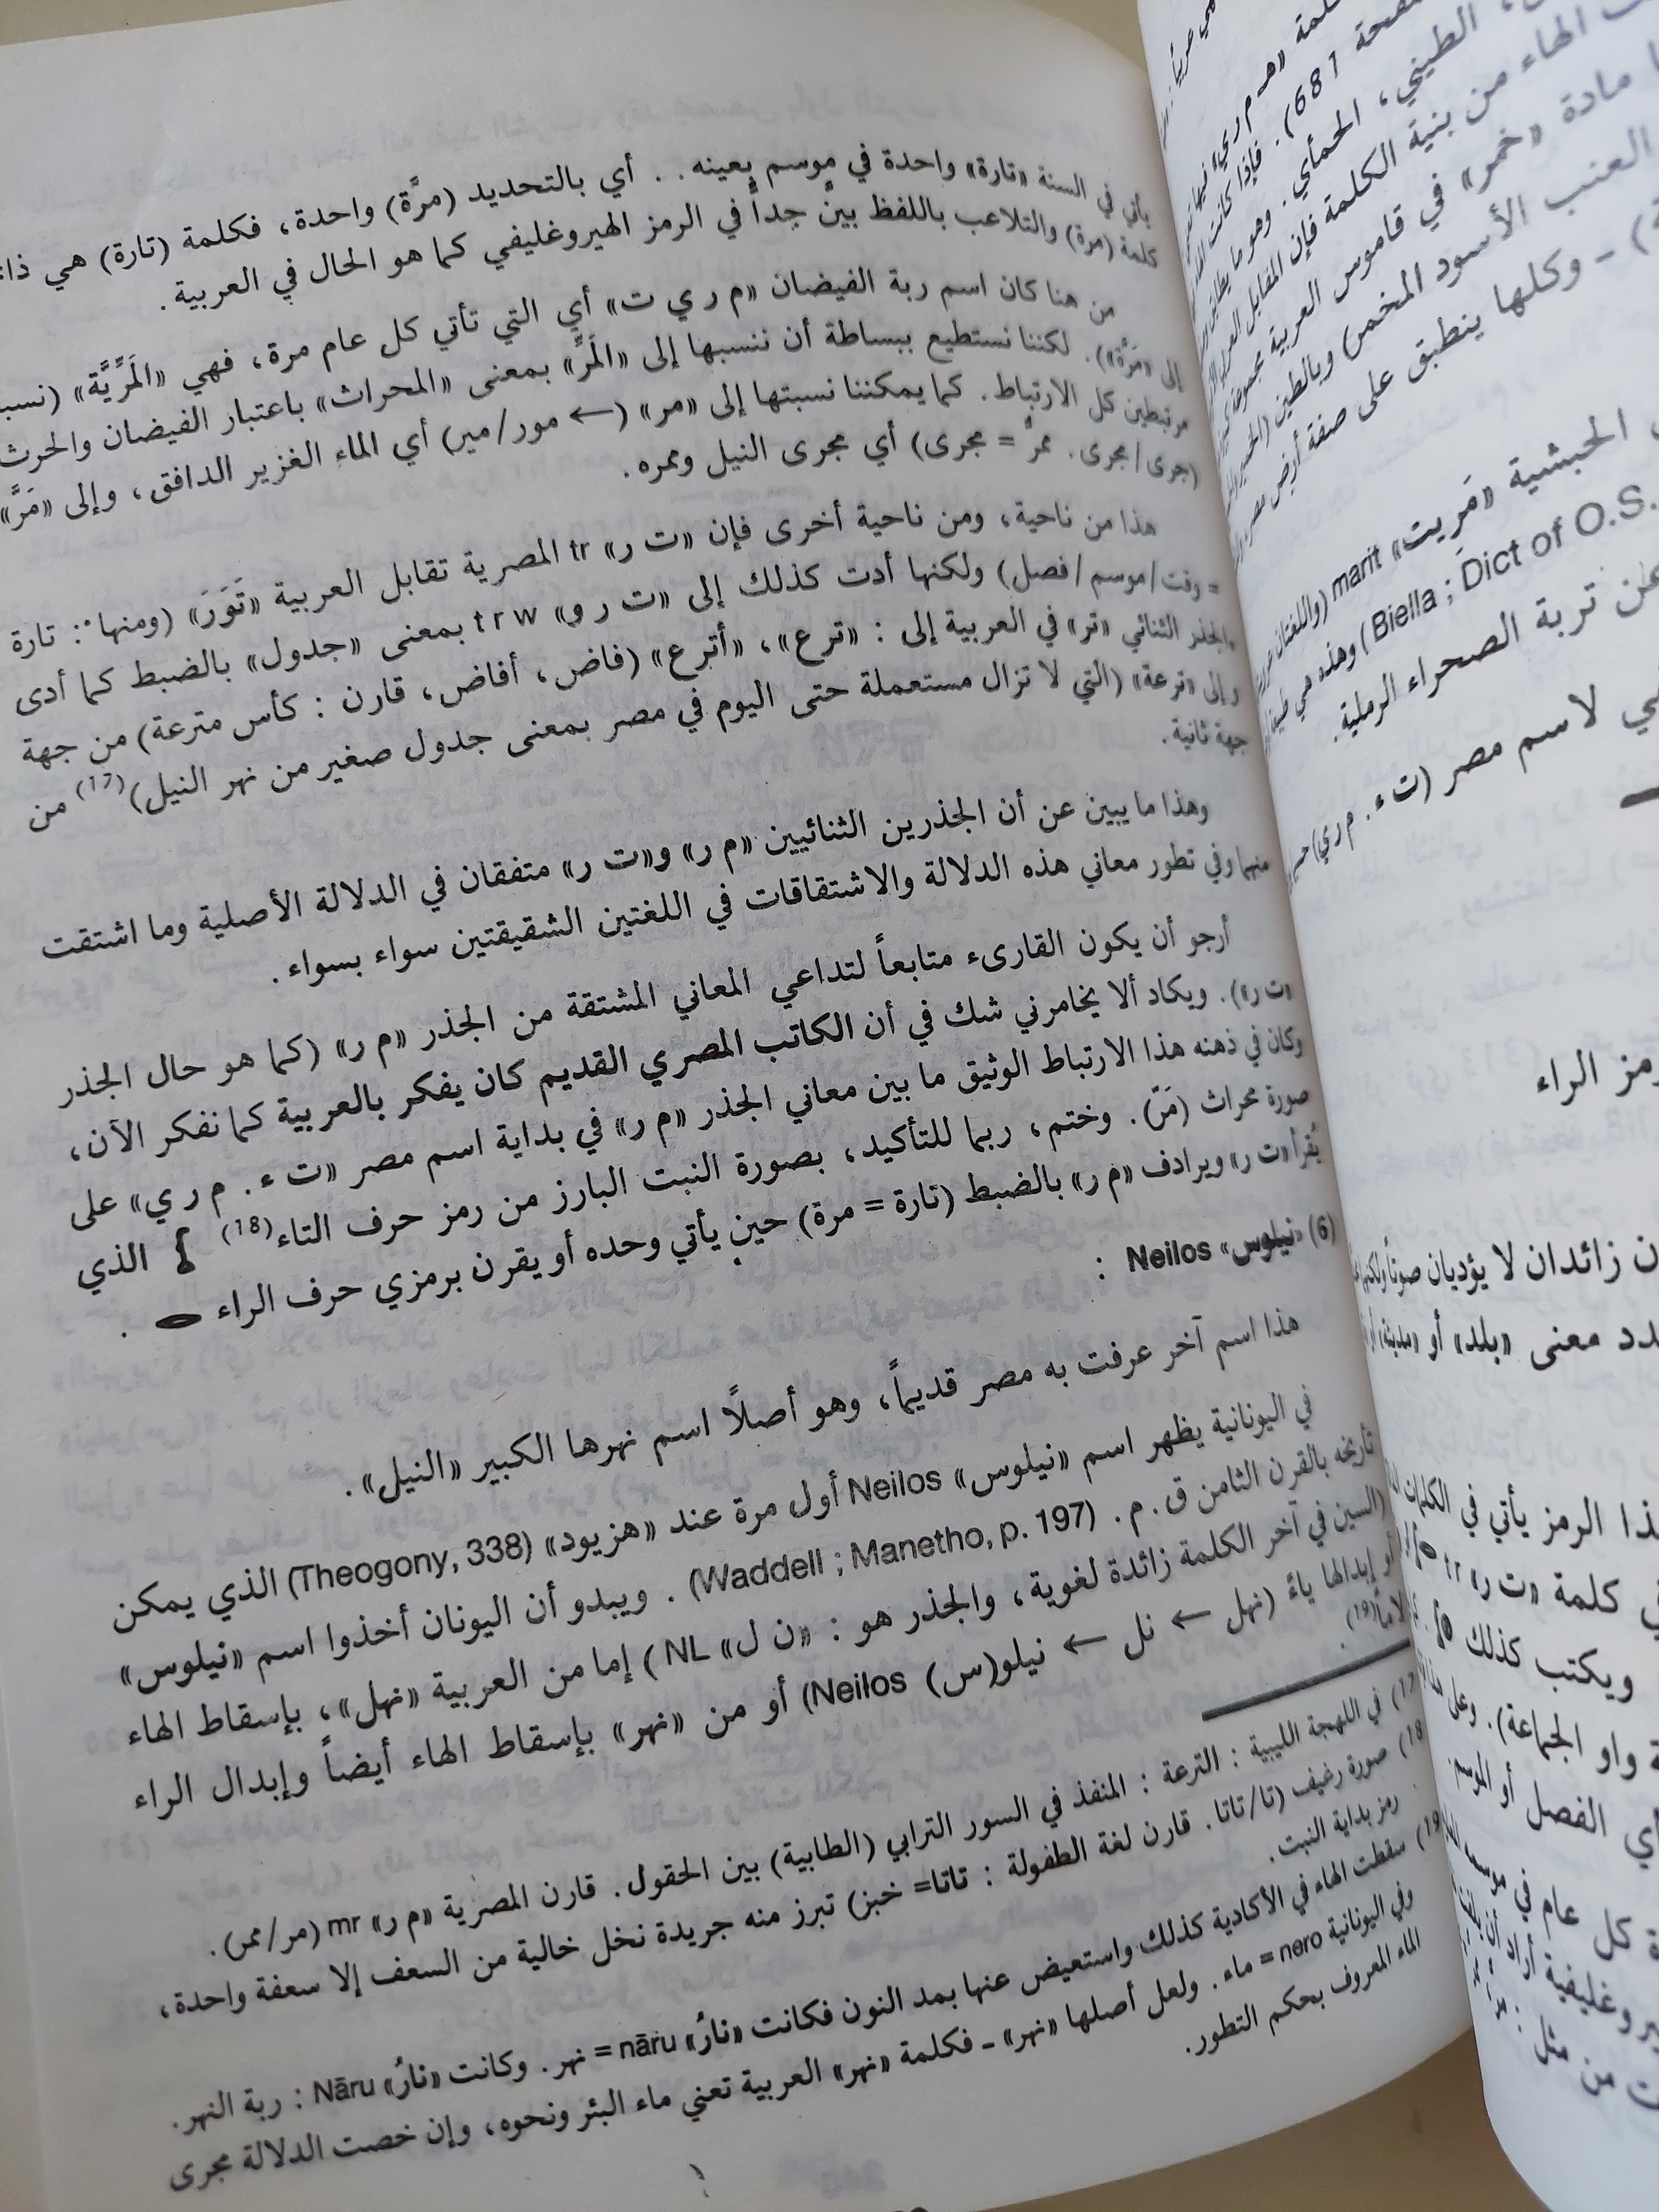 يأتي في السنة «تارة» واحدة في موسم بعينه . . أي بالتحديد (مرَّة) واحدة، فكلمة (تارة) هي
كلمة (مرة) والتلاعب باللفظ بينٌ جداً في الرمز الهيروغليفي كما هو الحال في العربية .
من هنا كان اسم ربة الفيضان «م ر ي ت» أي التي تأتي كل عام مرة، فهي «المَرِّيَّة»
إلى «مَرَّة»). لكننا نستطيع ببساطة أن ننسبها إلى «المَرِّ» بمعنى «المحراث» باعتبار الفيضان والحرث
مرتبطين كل الارتباط. كما يمكننا نسبتها إلى «مر» (← مور/مير) أي الماء الغزير الدافق، وإلى «مَرَّ»
(جرى/مجرى. ممرّ = مجرى) أي مجرى النيل وممره.
هذا من ناحية، ومن ناحية أخرى فإن «ت ر» tr المصرية تقابل العربية «تَوَرَ» (ومنها: تارة
= وقت/موسم/فصل) ولكنها أدت كذلك إلى «ت ر و» t r w بمعنى «جدول» بالضبط كما أدى
الجذر الثنائي «تر» في العربية إلى : «ترع»، «أترع» (فاض، أفاض، قارن : كأس مترعة) من جهة
وإلى «ترعة» (التي لا تزال مستعملة حتى اليوم في مصر بمعنى جدول صغير من نهر النيل)(17) من
جهة ثانية.
وهذا ما يبين عن أن الجذرين الثنائيين «م ر» و«ت ر» متفقان في الدلالة الأصلية وما اشتقت
منهما وفي تطور معاني هذه الدلالة والاشتقاقات في اللغتين الشقيقتين سواء بسواء.
أرجو أن يكون القارىء متابعاً لتداعي المعاني المشتقة من الجذر «م ر» (كما هو حال الجذر
«ت ر»). ويكاد ألا يخامرني شك في أن الكاتب المصري القديم كان يفكر بالعربية كما نفكر الآن،
وكان في ذهنه هذا الارتباط الوثيق ما بين معاني الجذر «م ر» في بداية اسم مصر «ت ء. م ر ي» على
صورة محراث (مَرّ). وختم، ربما للتأكيد، بصورة النبت البارز من رمز حرف التاء(18) الذي
يُقرأ «ت ر» ويرادف «م ر» بالضبط (تارة = مرة) حين يأتي وحده أو يقرن برمزي حرف الراء .
(6) «نيلوس» Neilos :
هذا اسم آخر عرفت به مصر قديماً، وهو أصلاً اسم نهرها الكبير «النيل».
في اليونانية يظهر اسم «نيلوس» Neilos أول مرة عند «هزيود» (Theogony, 338) الذي يمكن
تأريخه بالقرن الثامن ق. م. (Waddell ; Manetho, p. 197) . ويبدو أن اليونان أخذوا اسم «نيلوس»
(السين في آخر الكلمة زائدة لغوية، والجذر هو : «ن ل» NL ) إما من العربية «نهل»، بإسقاط الهاء
أو إبدالها ياءً (نهل ← نل ← نيلو(س) Neilos) أو من «نهر» بإسقاط الهاء أيضاً وإبدال الراء
لاماً(19).
17) في اللهجة الليبية : الترعة : المنفذ في السور الترابي (الطابية) بين الحقول. قارن المصرية «م ر» mr (مر/ممر).
18) صورة رغيف (تا/تاتا. قارن لغة الطفولة : تاتا= خبز) تبرز منه جريدة نخل خالية من السعف إلا سعفة واحدة،
رمز بداية النبت.
19) سقطت الهاء في الأكادية كذلك واستعيض عنها بمد النون فكانت «نارُ» nāru = نهر. وكانت «نارُ» Nāru : ربة النهر.
وفي اليونانية nero = ماء. ولعل أصلها «نهر» ـ فكلمة «نهر» العربية تعني ماء البئر ونحوه، وإن خصت الدلالة مجرى
الماء المعروف بحكم التطور.
كلمة «هـ م ري»
681). فإذا كانت
الطيني، الحمأي. وهو ما يطلق
الهاء من بنية الكلمة فإن المقابل
مادة «خمر» في قاموس العربية مجموعة
العنب الأسود المخمر) وبالطين
ـ وكلها ينطبق على صفة أرض مصر
الحبشية «مَريت» marit
Biella ; Dict of O.S.) وهذه هي
عن تربة الصحراء الرملية.
لاسم مصر (ت ء. م ري)
رمز الراء
زائدان لا يؤديان صوتاً
معنى «بلد» أو «مدينة»
الرمز يأتي في الكلمات
في كلمة «ت ر» tr
ويكتب كذلك
واو الجماعة). وعلى
أي الفصل أو الموسم.
كل عام في موسم
أراد أن
من مثل :